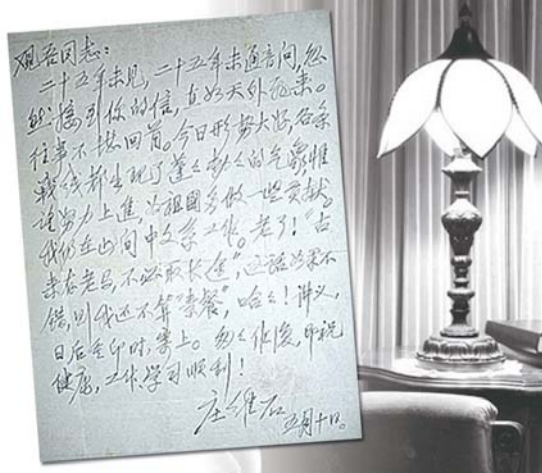 观吾同志：
二十五年未见，二十五年未通音问，忽
然接到你的信，真如天外飞来。
往事不堪回首。今日形势大好，各条
战线都出现了蓬々勃々的气象，惟
努力上进，为祖国多做一些贡献。
我仍在山师中文系工作。老了！“古
来存老马，不必取长途”，这话如果不
错，则我还不算“素餐”，哈々！讲义，
日后重印时，寄上。匆々作复，即祝
健康，工作、学习顺利！
庄维石
五月十日。